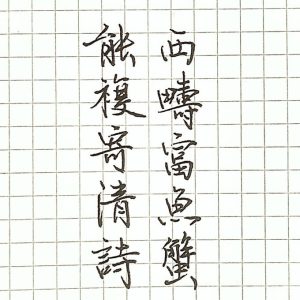 西疇富魚蟹
能複寄清詩